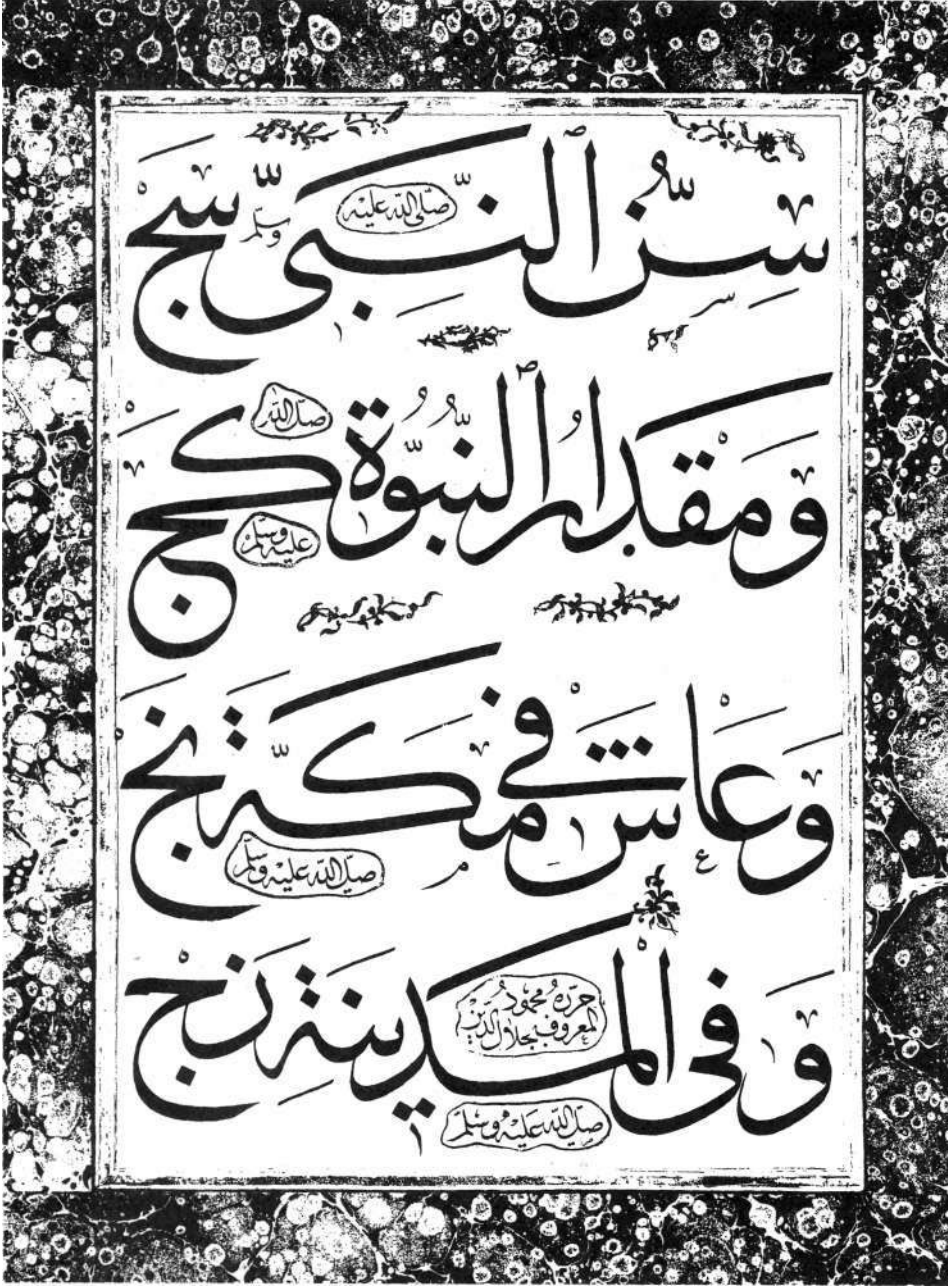 سِنُّ النَّبِيِّ سَجْ
صلّى الله عليه وسلّم
وَمِقْدَارُ النُّبُوَّةِ كَجْ
صلى الله
عليه وسلم
وَعَاشَ فِي مَكَّةَ نَجْ
صلى الله عليه وسلم
وَفِي الْمَدِينَةِ زَجْ
حرره محمود
المعروف بجلال الدين
صلى الله عليه وسلم